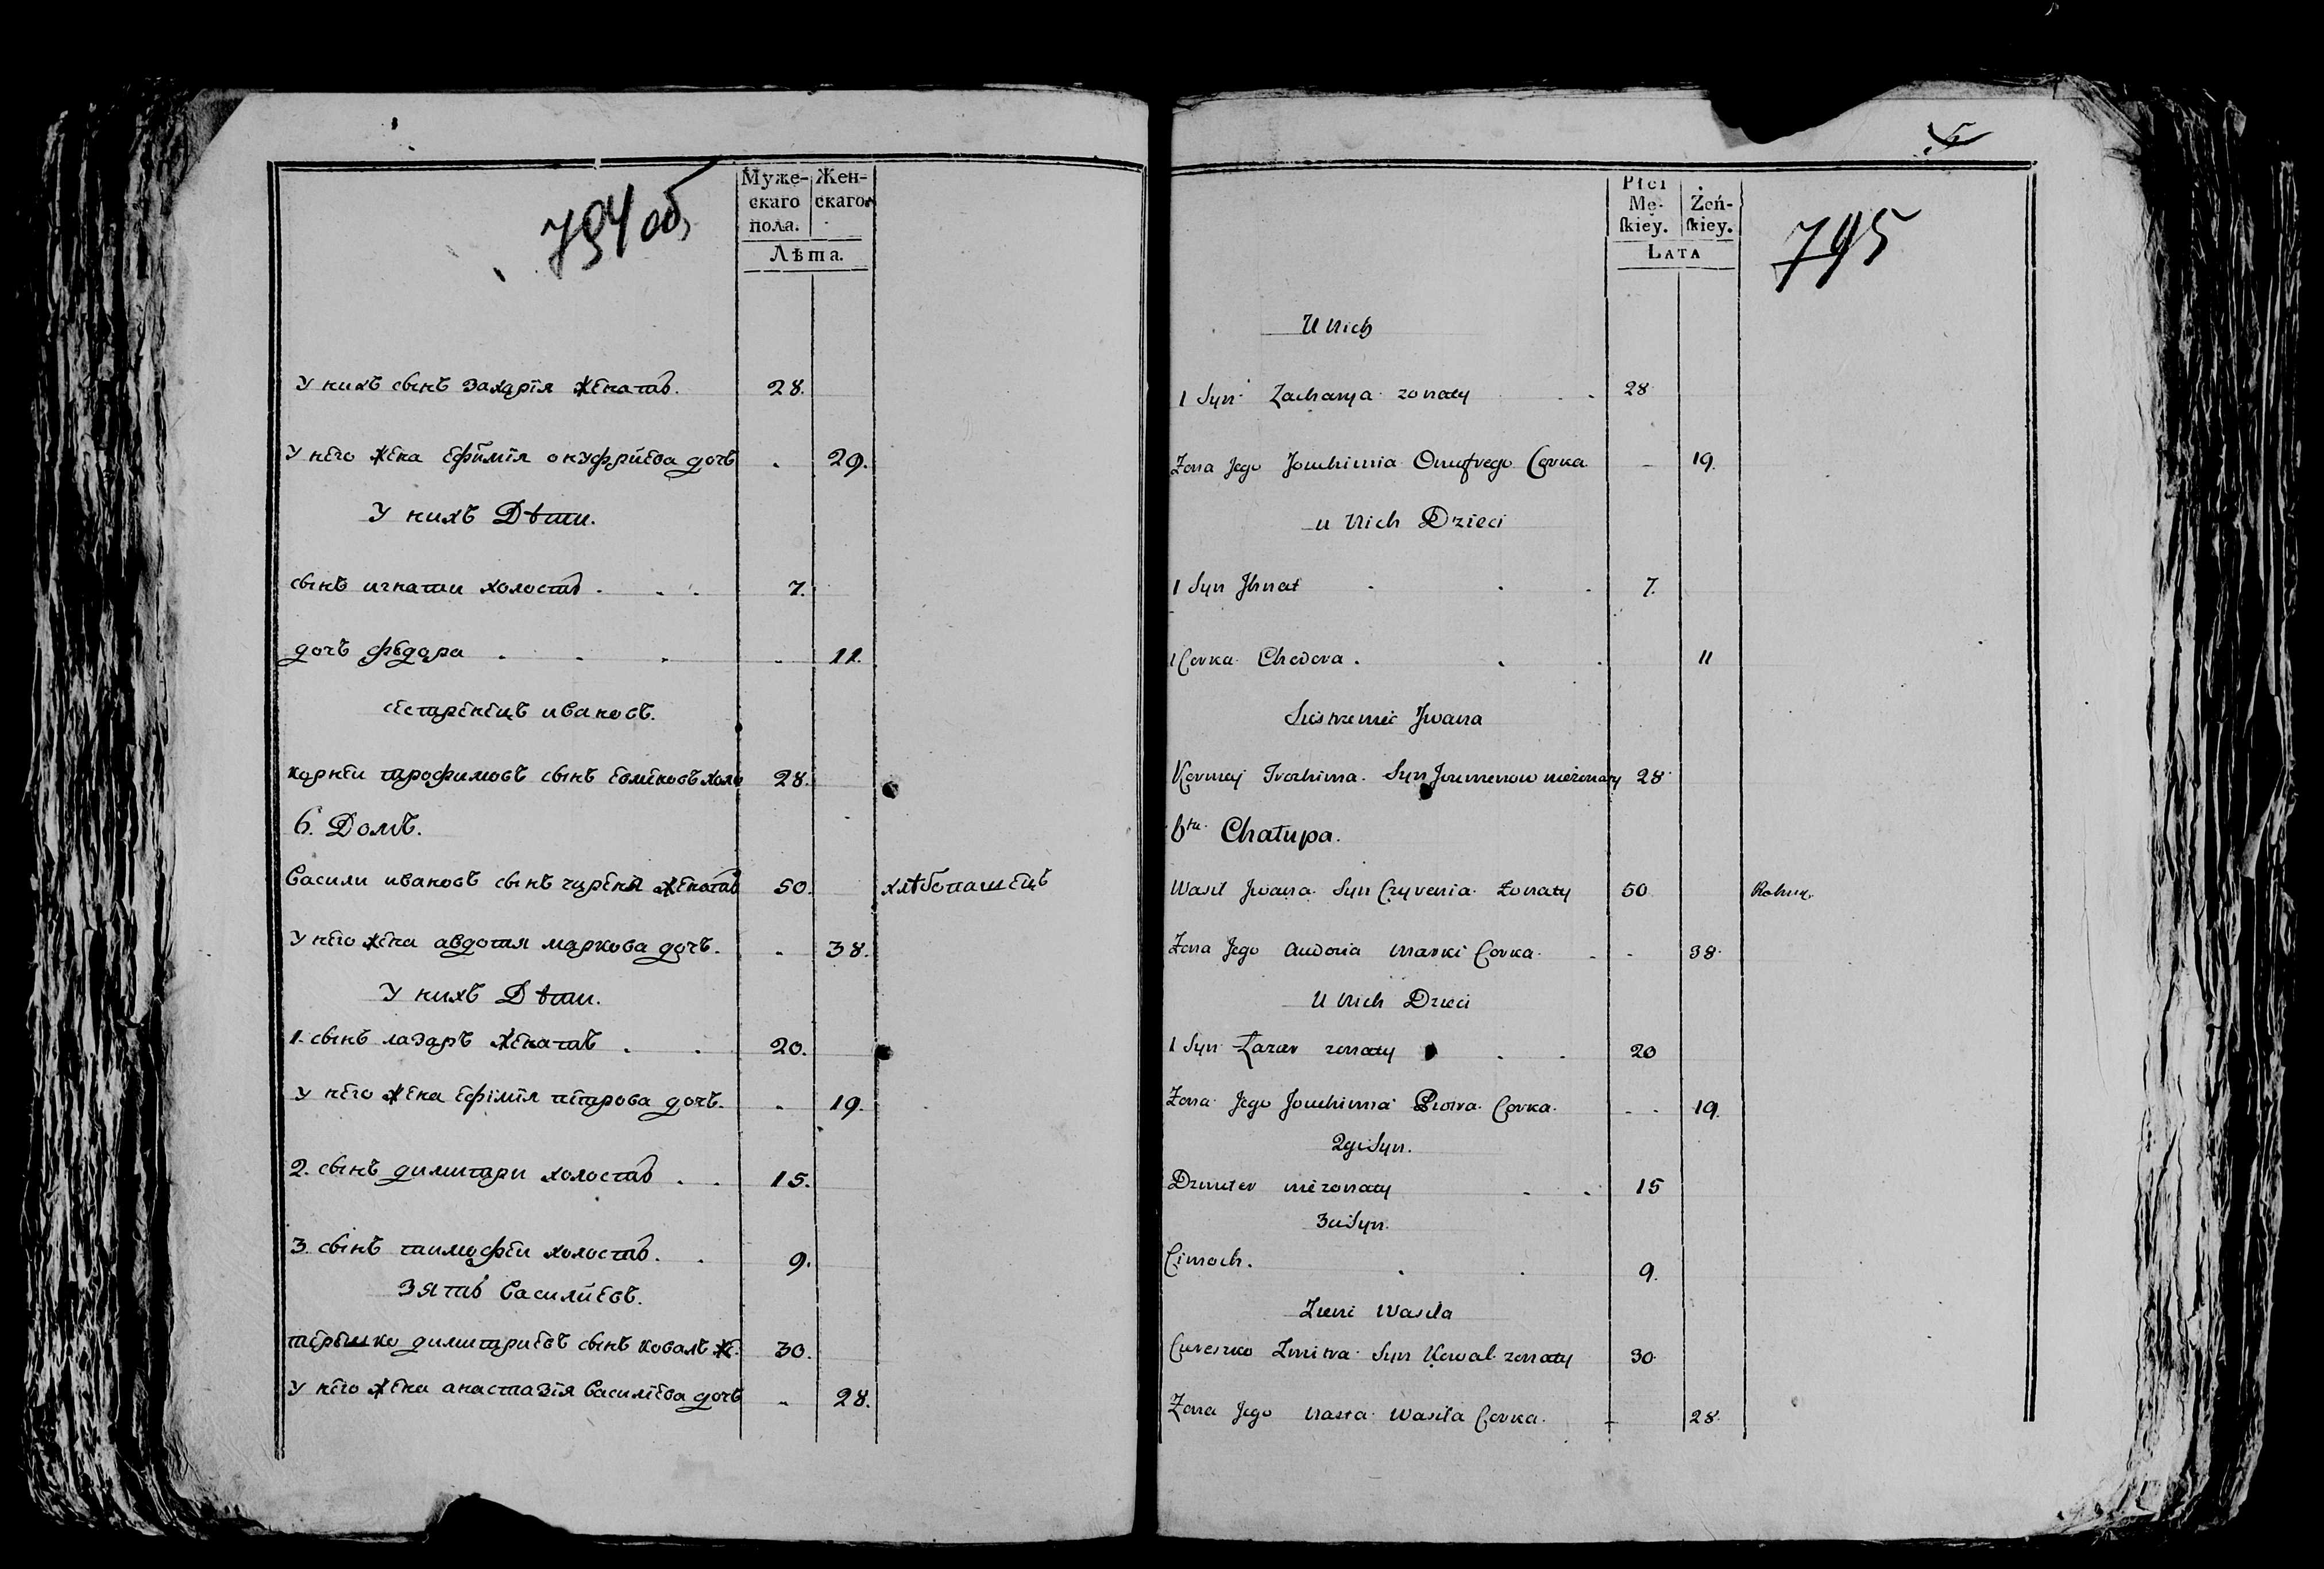 794 об
Муже-
скаго
пола.
Жен-
скаго
Лѣта.
У нихъ сынъ Захарїя женатъ. 28.
У него жена Ефимїя онуфрїева дочъ . 29.
У нихъ Дѣти.
сынъ игнатии холостъ . . . 7.
дочъ фѣдора . . . . 11.
сестренецъ ивановъ.
корнеи трофимовъ сынъ холо 28.
6. Домъ.
Василии ивановъ сынъ женатъ 50. хлѣбопашецъ
У него жена авдотия маркова дочъ. . 38.
У нихъ Дѣти.
1. сынъ лазаръ женатъ . . 20.
У него жена Ефімїя петрова дочъ. . 19.
2. сынъ димитари холостъ . . 15.
3. сынъ тимофеи холостъ. . 9.
Зять Василиевъ.
терешко димитриевъ сынъ ковалъ же. 30.
У него жена анастазїя Василїева дочъ . 28.
5
Płci
Mę-
ſkiey.
Żeń-
ſkiey.
Lata
795
U Nich
1 Syn Zacharya zonaty . . 28
Zona Jego Jouchimia Onufrego Corka — 19.
u Nich Dzieci
1 Syn Jhnat . . . 7.
1 Corka Chodora . . . 11
Siostrzeniec Jwana
Korniej Trochima Syn niezonaty 28
6ta Chałupa.
Wasil Jwana Syn zonaty 50
Zona Jego Audotia Marki Corka . . 38
U Nich Dzieci
1 Syn Łazar zonaty . . 20
Zona Jego Jouchimia Piotra Corka . . 19.
2gi Syn.
Dzmiter niezonaty . . 15
3ci Syn.
Cimoch. . . 9.
Zienć Wasila
Cereszko Zmitra Syn Kowal zonaty 30
Zona Jego Nasta Wasila Corka. 28